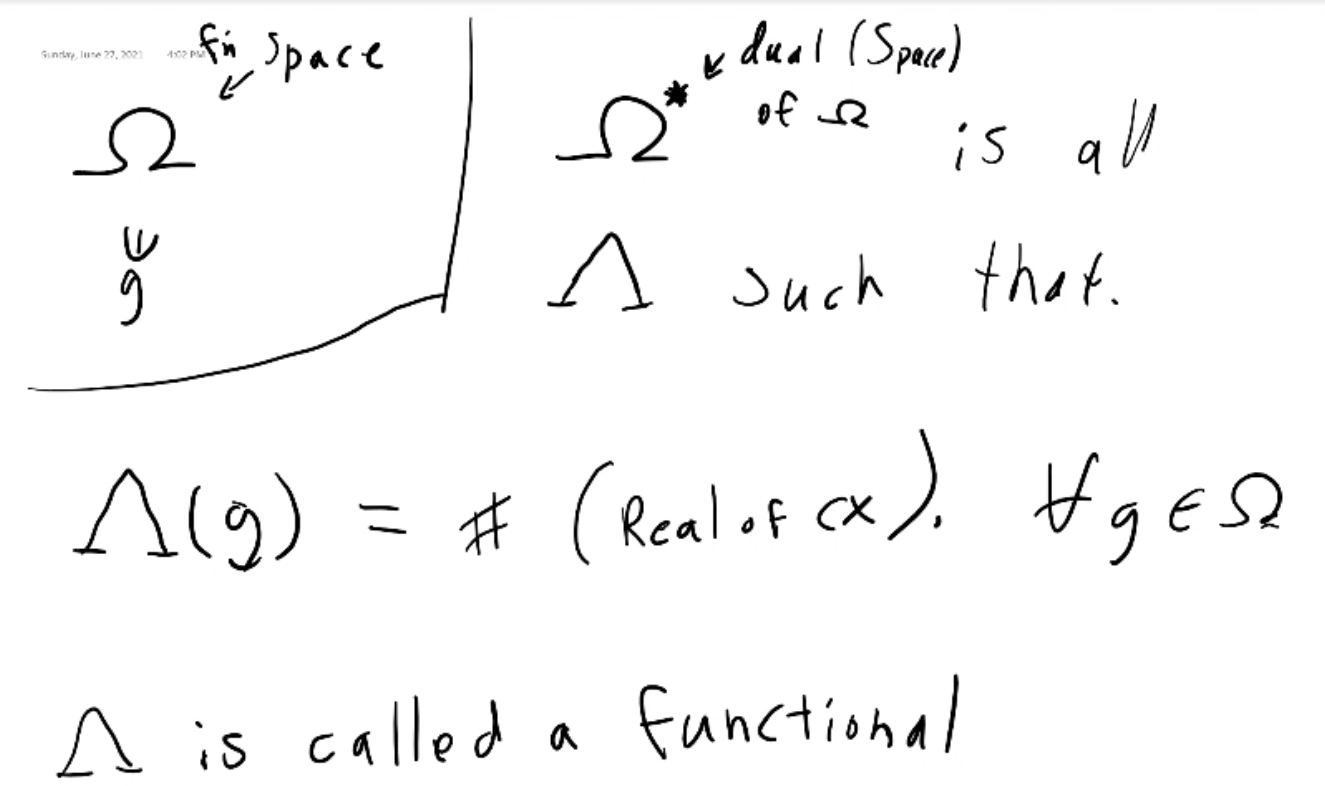 Sunday, June 27, 2021 4:02 PM
fn space
Ω
∋
g
Ω* dual (Space)
of Ω is all
Λ such that.
Λ(g) = # (Real of cx). ∀ g ∈ Ω
Λ is called a functional